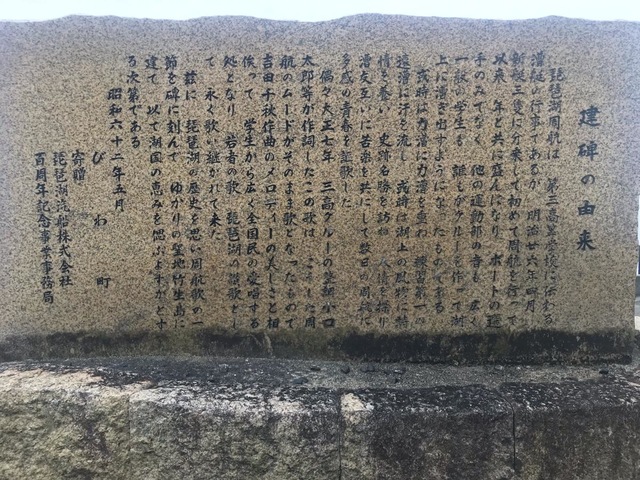 建碑の由来
琵琶湖周航は 第三高等学校に伝わる
漕艇の行事であるが 明治廿六年四月
新艇三隻に分乗して初めて周航を行って
以来 年と共に盛んになり ボートの選
手のみでなく 他の運動部の者も 広く
一般の学生も 誰もがクルーを作って湖
上に漕ぎ出すようになったものである
或時は力漕に力漕を重ね 練習第一の
遠漕に汗を流し 或時は湖上の風物に詩
情を養い 史跡名勝を訪ね 人情を探り
漕友互いに苦楽を共にして数日の周航に
多感の青春を謳歌した
偶々大正七年 三高クルーの小口
太郎等が作詞したこの歌は こうした周
航のムードがそのまま歌となったもので
吉田千秋作曲のメロディーの美しさと相
俟って 学生から広く全国民の愛唱する
処となり 若者の歌 琵琶湖の讃歌とし
て 永く歌い継がれて来た
茲に 琵琶湖の歴史を思い周航歌の一
節を碑に刻んで ゆかりの聖地竹生島に
建て 以て湖国の恵みを偲ぶよすがとす
る次第である
昭和六十二年五月
びわ町
寄贈 琵琶湖汽船株式会社
百周年記念事業事務局